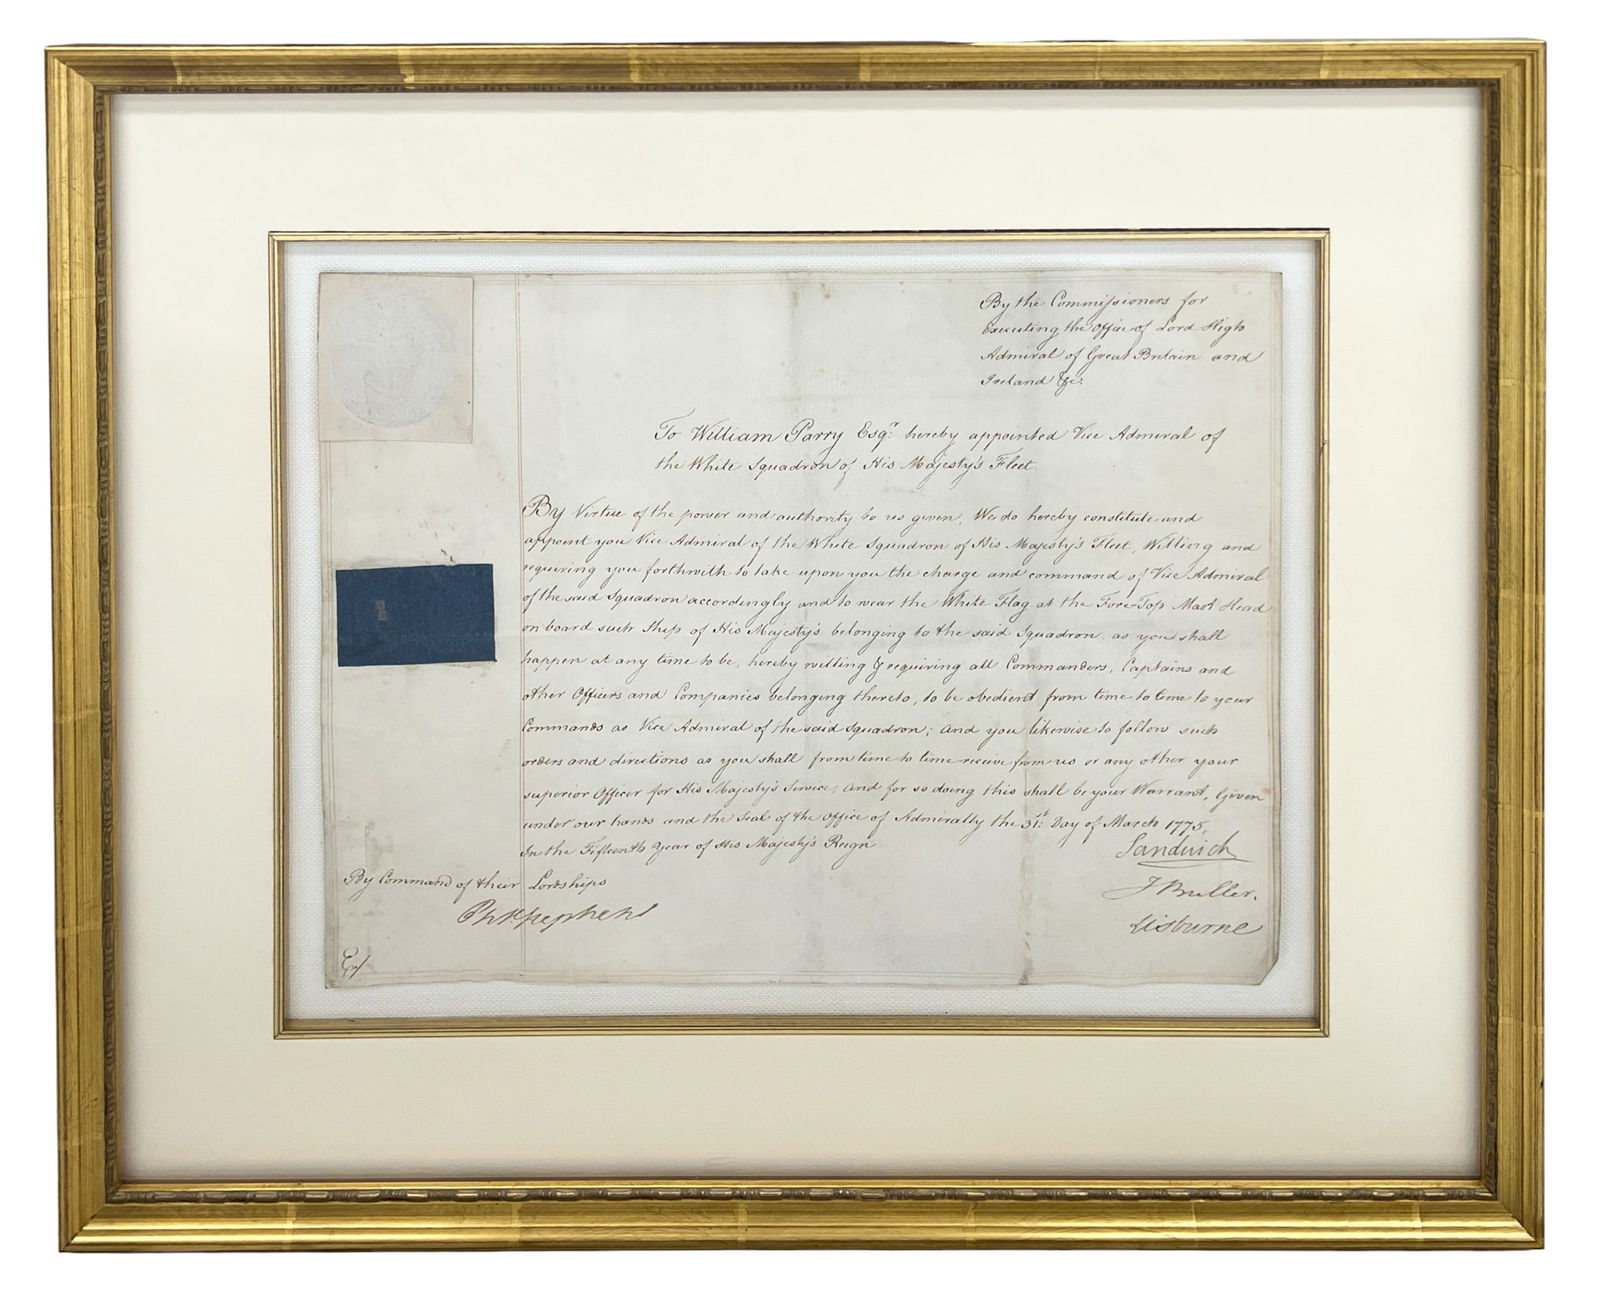 By the Commissioners for
Executing the Office of Lord High
Admiral of Great Britain and
Ireland &c.
To William Parry Esqr. hereby appointed Vice Admiral of
the White Squadron of His Majesty's Fleet.
By Virtue of the power and authority to us given, We do hereby constitute and
appoint you Vice Admiral of the White Squadron of His Majesty's Fleet, Willing and
requiring you forthwith to take upon you the charge and command of Vice Admiral
of the said Squadron accordingly and to wear the White Flag at the Fore-Top Mast Head
on board such Ship of His Majesty's belonging to the said Squadron, as you shall
happen at any time to be, hereby willing & requiring all Commanders, Captains and
other Officers and Companies belonging thereto, to be obedient from time to time to your
Commands as Vice Admiral of the said Squadron; And you likewise to follow such
orders and directions as you shall from time to time receive from us or any other your
superior Officer for His Majesty's Service; And for so doing this shall be your Warrant, Given
under our hands and the Seal of the Office of Admiralty the 31st. Day of March 1775,
In the Fifteenth Year of His Majesty's Reign
Sandwich
J Buller.
Lisburne
By Command of their Lordships
Php Stephens